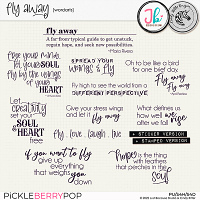 fly away
{wordarts}
fly away
A far-from-typical guide to get unstuck,
regain hope, and see new possibilities.
SPREAD YOUR
wings & fly
Oh to be like a bird
for one brief day.
Fly away
Fly away
free your mind,
let your SOUL
fly by the wings
of your
HEART
Fly high to see
from a
DIFFERENT PERSPECTIVE
Let
creativity
set your
SOUL
& HEART
free
Give your stress wings
and let it
fly away
What defines us
how well we
rise after we
fall
fly. love. laugh. live
+ STICKER VERSION
+ STAMPED VERSION
if you want to fly
give up
everything
that weighs
you down
hope is the thing
with feathers
that perches in the
soul
PICKLEBERRYPOP